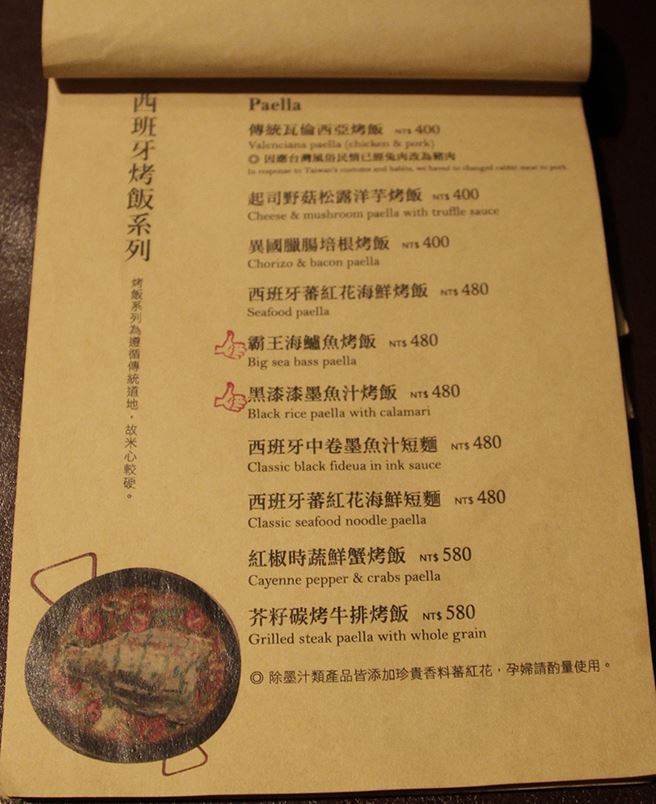 西班牙烤飯系列
烤飯系列為遵循傳統道地，故米心較硬。
Paella
傳統瓦倫西亞烤飯 NT$ 400
Valenciana paella (chicken & pork)
◎ 因應台灣風俗民情已經兔肉改為豬肉
In response to Taiwan's customs and habits, we haved to changed rabbit meat to pork.
起司野菇松露洋芋烤飯 NT$ 400
Cheese & mushroom paella with truffle sauce
異國臘腸培根烤飯 NT$ 400
Chorizo & bacon paella
西班牙蕃紅花海鮮烤飯 NT$ 480
Seafood paella
霸王海鱸魚烤飯 NT$ 480
Big sea bass paella
黑漆漆墨魚汁烤飯 NT$ 480
Black rice paella with calamari
西班牙中卷墨魚汁短麵 NT$ 480
Classic black fideua in ink sauce
西班牙蕃紅花海鮮短麵 NT$ 480
Classic seafood noodle paella
紅椒時蔬鮮蟹烤飯 NT$ 580
Cayenne pepper & crabs paella
芥籽碳烤牛排烤飯 NT$ 580
Grilled steak paella with whole grain
◎ 除墨汁類產品皆添加珍貴香料蕃紅花，孕婦請酌量使用。